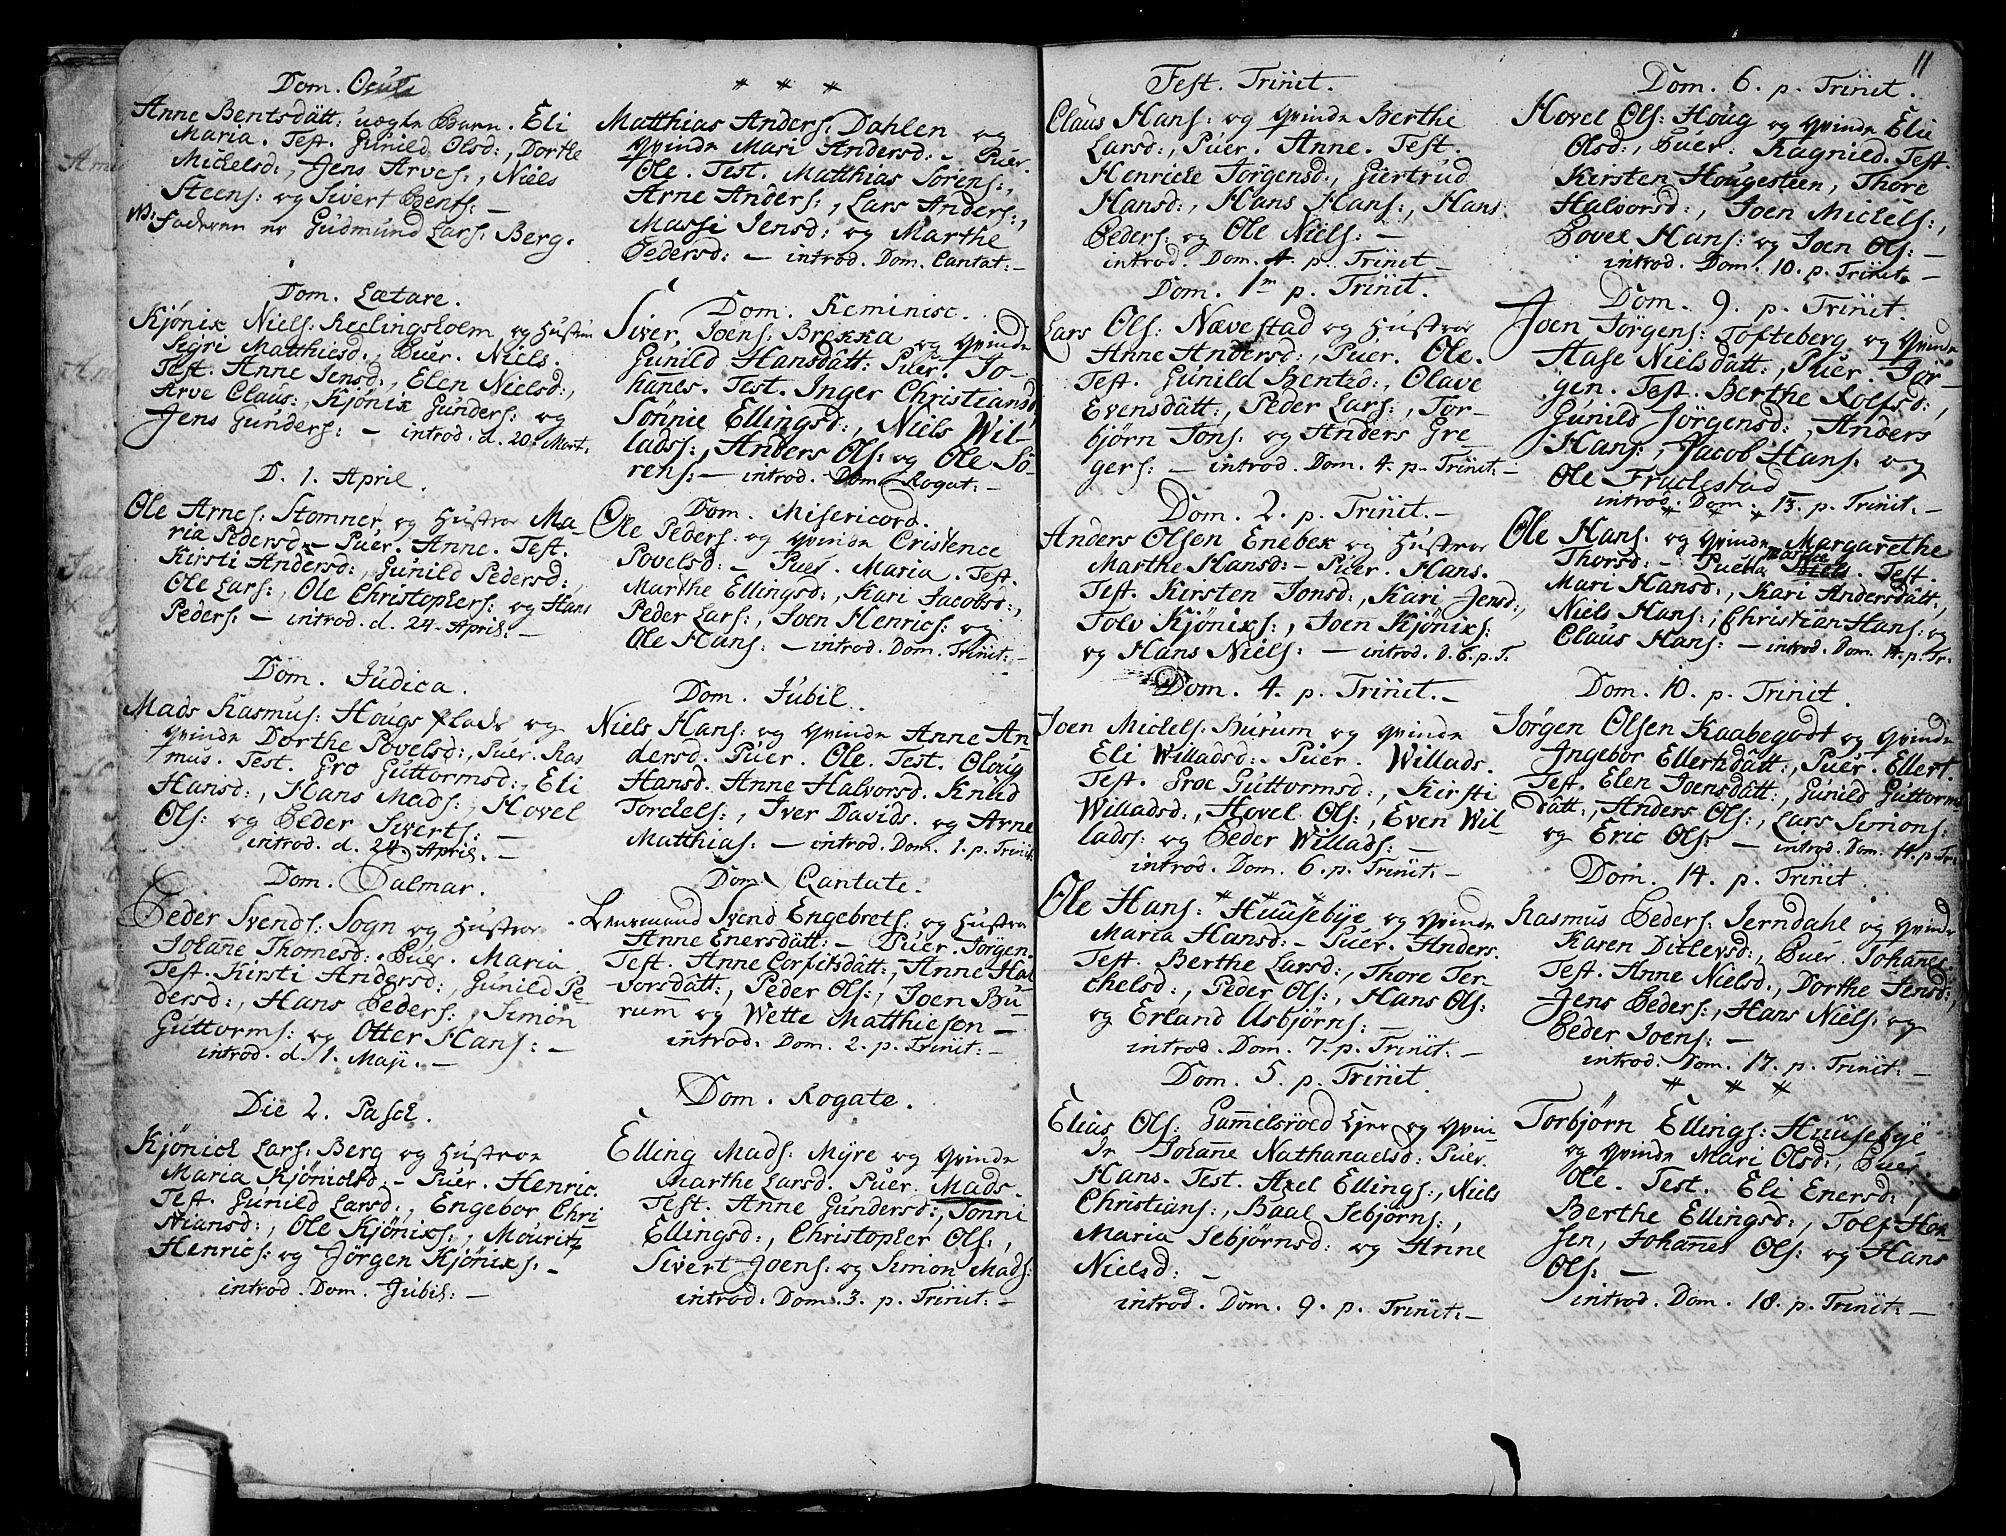 Dom. Oculi
Anne Bentsdått: uægte Barn. Eli
Maria. Test. Gunild Olsd:, Dorthe
Mickelsd:, Jens Arves:, Niels
Steens: og Sivert Bents: —
NB: Faderen er Gudmund Lars: Berg.
Dom. Lætare.
Kjönix Niels: Reelingsholm og Hustru
Sigri Matthiesd:, Puer. Niels.
Test. Anne Jensd:, Elen Nielsd:,
Arve Claus:, Kjönix Gunders: og
Jens Gunders: — introd. d. 20. Mart.
D. 1. April.
Ole Arnes: Stomner og Hustroe Ma-
ria Pedersd: — Puer. Anne. Test.
Kirsti Andersd:, Gunild Pedersd:,
Ole Lars:, Ole Christophers: og Hans
Peders: — introd. d. 24. April: —
Dom. Judica.
Mads Rasmus: Hougs plads og
Qvinde Dorthe Povelsd:, Puer. Ras
mus. Test. Gro Guttormsd:, Eli
Hansd:, Hans Mads:, Hovel
Ols: og Peder Siverts: —
introd. d. 24. April. —
Dom. Palmar.
Peder Svends: Sogn og Hustroe
Johanne Thomesd:. Puer. Maria.
Test. Kirsti Andersd:, Gunild Pe-
dersd:, Hans Peders:, Simon
Guttorms: og Otter Hans: —
introd. d. 1. Maji. —
Die 2. Pasch.
Kjönick Lars: Berg og Hustroe
Maria Kjönichsd: — Puer. Henric.
Test. Gunild Larsd:, Engebor Chri
stiansd:, Ole Kjönixs:, Mouritz
Henrics: og Jörgen Kjönixs: —
introd. Dom. Jubil: —
* * *
Matthias Anders: Dahlen og
Qvinde Mari Andersd: — Puer.
Ole. Test. Matthias Sörens:,
Arne Anders:, Lars Anders:,
Massi Jensd: og Marthe
Pedersd: — introd. Dom. Cantat: —
Dom. Reminisc.
Siver Joens: Brekka og Qvinde
Gunild Hansdått: Puer. Jo-
hanes. Test. Inger Christiansd
Sönnie Ellingsd:, Niels Wil-
lads:, Anders Ols: og Ole Sö-
rens: — introd. Dom. Rogat: —
Dom. Misericord.
Ole Peders: og Qvinde Cristence
Povelsd: — Puer. Maria. Test.
Marthe Ellingsd:, Kari Jacobsd:,
Peder Lars:, Joen Henrics: og
Ole Hans: — introd. Dom. Trinit: —
Dom. Jubil.
Niels Hans: og Qvinde Anne An-
dersd. Puer. Ole. Test. Oloug
Hansd. Anne Halvorsd. Knud
Torckels:, Iver Davids. og Arne
Matthias: — introd. Dom. 1. p. Trinit.
Dom. Cantate.
Lensmand Svend Engebrets: og Hustroe
Anne Enersdått: — Puer. Jörgen.
Test. Anne Corfitsdått:, Anne Hal
vorsdått:, Peder Ols:, Joen Bu-
rum og Wette Matthiesen —
introd. Dom. 2. p. Trinit: —
Dom. Rogate.
Elling Mads: Myre og Qvinde
Marthe Larsd. Puer. Mads.
Test. Anne Gundersd:, Sönni
Ellingsd:, Christopher Ols:,
Sivert Joens: og Simon Mads:
introd. Dom. 3. p. Trinit: —
Fest. Trinit.
Claus Hans: og Qvinde Berthe
Larsd:, Puer. Anne. Test.
Henricke Jörgensd:, Giertrud
Hansd:, Hans Hans:, Hans
Peders: og Ole Niels: —
introd. Dom. 4. p. Trinit —
Dom. 1m p. Trinit.
Lars Ols: Nævestad og Hustroe
Anne Andersd:, Puer. Ole.
Test. Gunild Bentsd:, Olave
Evensdått:, Peder Lars:, Tor-
björn Jons: og Anders Gre
gers: — introd. Dom. 4. p. Trinit: —
Dom. 2. p. Trinit. —
Anders Olsen Enebek og Hustroe
Marthe Hansd: — Puer. Hans.
Test. Kirsten Jonsd:, Kari Jensd:,
Tolv Kjönixs:, Joen Kjönixs:
og Hans Niels: — introd. D. 6. p. T.
Dom. 4. p. Trinit. —
Joen Mickels: Burum og Qvinde
Eli Willadsd: — Puer. Willads.
Test. Groe Guttormsd:, Kirsti
Willadsd:, Hovel Ols:, Even Wil-
lads: og Peder Willads: —
introd. Dom. 6. p. Trinit: —
* * *
Ole Hans: Huusebye og Qvinde
Maria Hansd: — Puer. Anders.
Test. Berthe Larsd:, Thore Ter-
chelsd:, Peder Ols:, Hans Ols:
og Erland Asbjörns: —
introd. Dom. 7. p. Trinit: —
Dom. 5. p. Trinit.
Elias Ols: Gammelsröed Ejer og Qvin-
de Johanne Nathanaelsd: Puer.
Hans. Test. Axel Ellings:, Niels
Christians:, Baal Sebjörns:,
Maria Sebjörnsd: og Anne
Nielsd: —
introd. Dom. 9. p. Trinit: —
11
Dom. 6. p. Trinit.
Hovel Ols: Houg og Qvinde Elie
Olsd:, Puer. Ragnild. Test.
Kirsten Hougesteen, Thore
Halvorsd:, Joen Mickels:,
Povel Hans: og Joen Ols: —
introd. Dom. 10. p. Trinit. —
Dom. 9. p. Trinit.
Joen Jörgens: Tofteberg og Qvinde
Aase Nielsdått:, Puer. Jör-
gen. Test. Berthe Rolfsd:,
Gunild Jörgensd:, Anders
Hans:, Jacob Hans: og
Ole Fruelestad
introd. Dom. 15. p. Trinit. —
* * *
Ole Hans: og Qvinde Margarethe
Thorsd: — Puella Marthe. Test.
Mari Hansd:, Kari Andersdått:,
Niels Hans:, Christian Hans: og
Claus Hans: — introd. Dom. 14. p. Tr.
Dom. 10. p. Trinit.
Jörgen Olsen Kaabegodt og Qvinde
Ingebor Ellertsdått:, Puer. Ellert.
Test. Elen Joensdått:, Gunild Guttorms
dått:, Anders Ols:, Lars Simons:
og Eric Ols: — introd. Dom. 14. p. Tr:
Dom. 14. p. Trinit.
Rasmus Peders: Jerndahl og Qvinde
Karen Ditlevsd:, Puer. Johanes.
Test. Anne Nielsd:, Dorthe Jensd:,
Jens Peders:, Hans Niels: og
Peder Joens: —
introd. Dom. 17. p. Trinit: —
* * *
Torbjörn Ellings: Huusebye
og Qvinde Mari Olsd:, Puer.
Ole. Test. Eli Enersd:,
Berthe Ellingsd:, Tolf Han-
sen, Johannes Ols: og Hans
Ols: —
introd. Dom. 18. p. Trinit: —